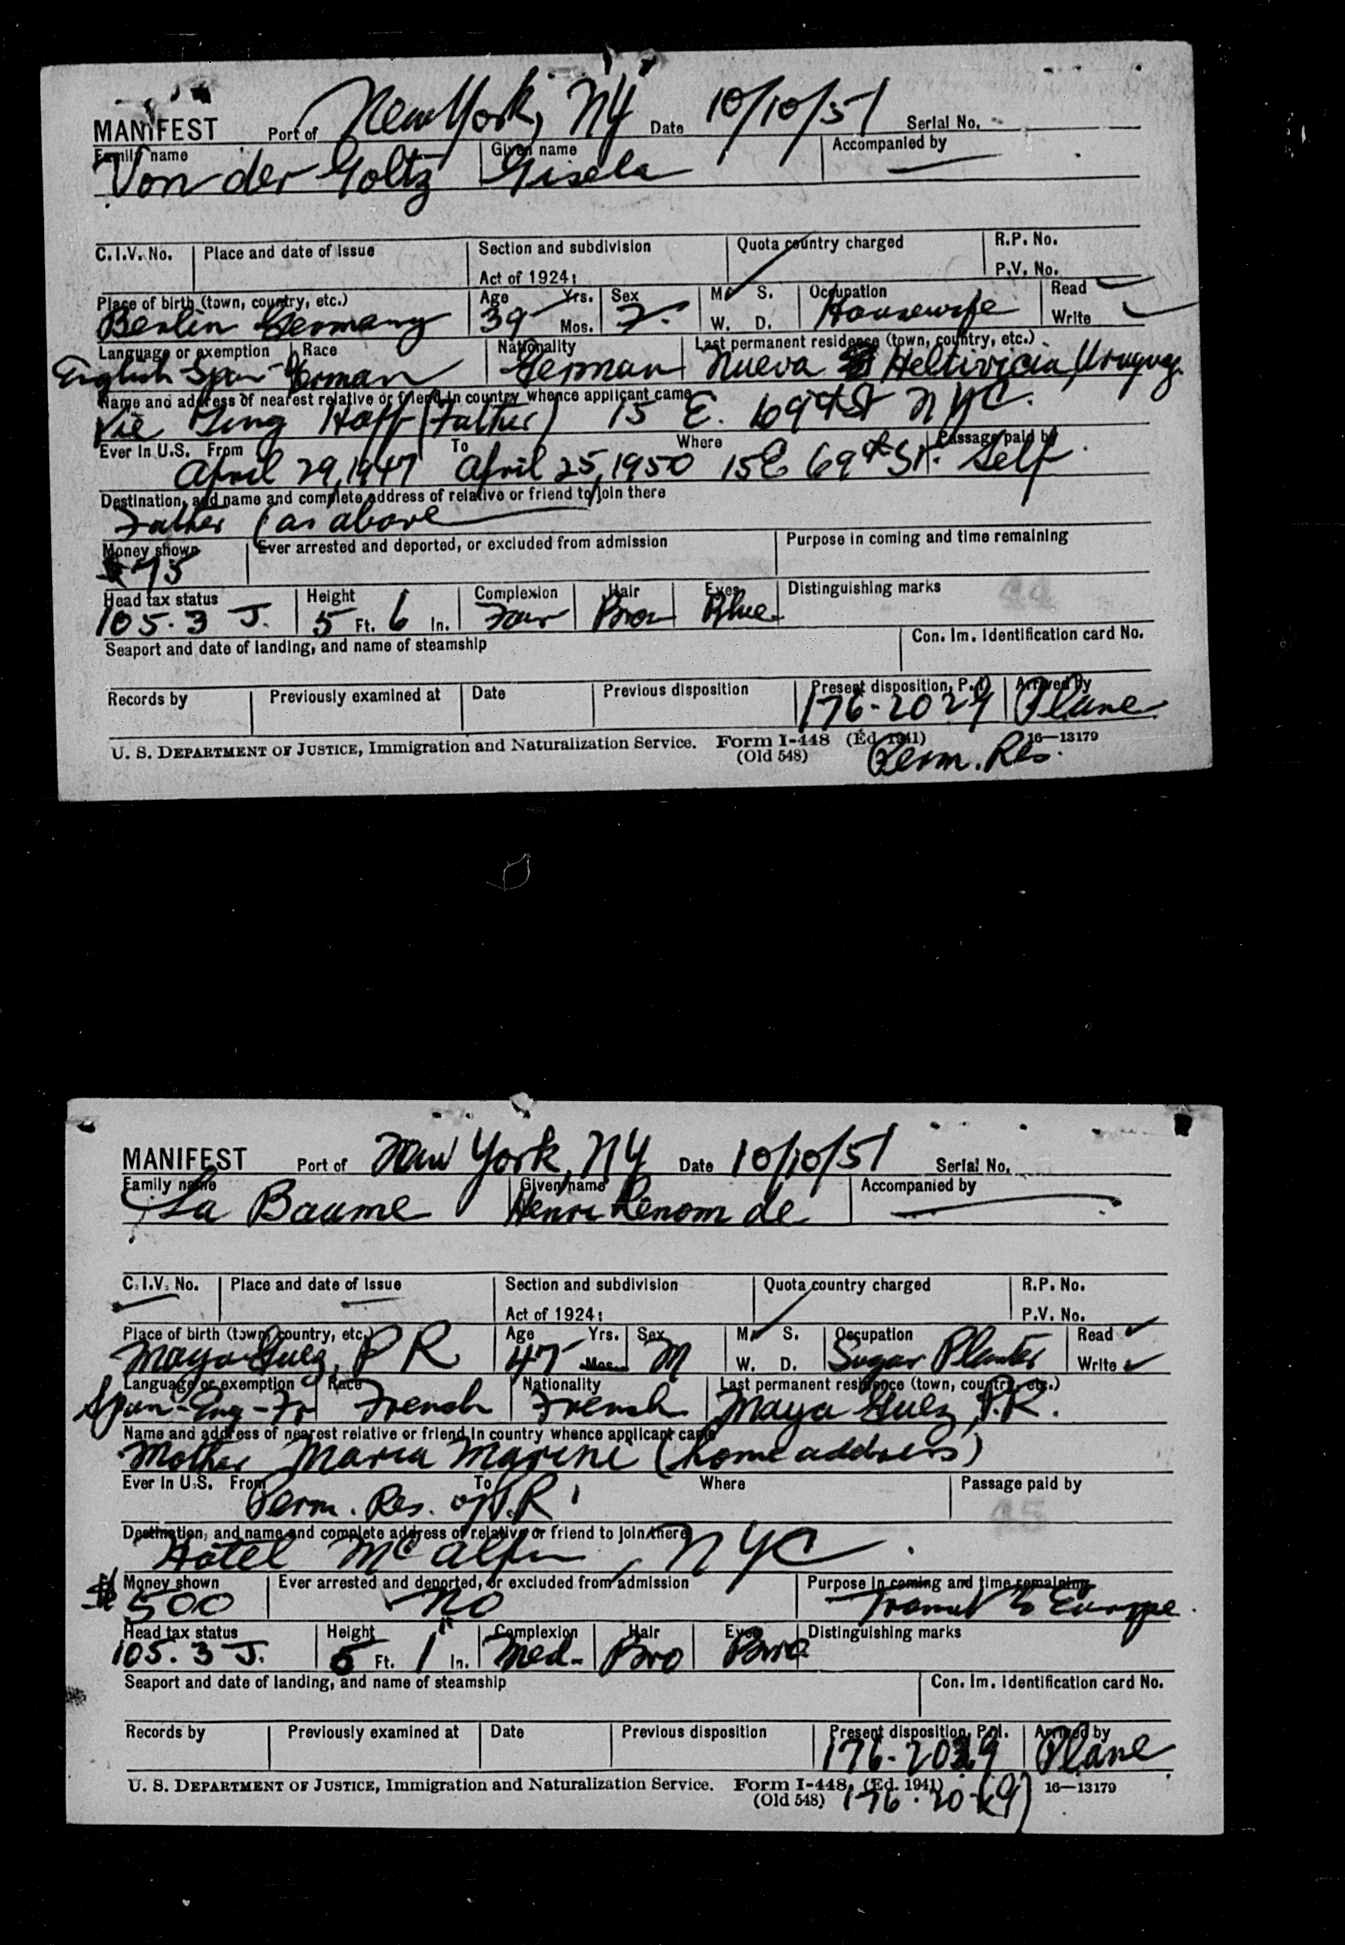 MANIFEST Port of New York, NY Date 10/10/51 Serial No.
Family name Given name Accompanied by
Von der Goltz Gisela
C.I.V. No. Place and date of issue Section and subdivision Quota country charged R.P. No.
Act of 1924: P.V. No.
Place of birth (town, country, etc.) Age Yrs. Sex M. S. Occupation Read
Berlin Germany 39 Mos. F. W. D. Housewife Write
Language or exemption Race Nationality Last permanent residence (town, country, etc.)
English Span German German Nueva Heltivicia, Uruguay
Name and address of nearest relative or friend in country whence applicant came
Hoff (Father) 15 E. 69th St NYC.
Ever in U.S. From To Where Passage paid by
April 29, 1947 April 25, 1950 15 E 69th St. Self
Destination, and name and complete address of relative or friend to join there
Father (as above
Money shown Ever arrested and deported, or excluded from admission Purpose in coming and time remaining
$75
Head tax status Height Complexion Hair Eyes Distinguishing marks 44
105.3 J. 5 Ft. 6 In. Fair Bro Blue
Seaport and date of landing, and name of steamship Con. Im. Identification card No.
Records by Previously examined at Date Previous disposition Present disposition, P.I. Arrived by
176-2029 Plane
U. S. Department of Justice, Immigration and Naturalization Service. Form I-448 (Ed. 1941) 16—13179
(Old 548) Perm. Res.
MANIFEST Port of New York, NY Date 10/10/51 Serial No.
Family name Given name Accompanied by
La Baume Henri Renom de
C.I.V. No. Place and date of issue Section and subdivision Quota country charged R.P. No.
Act of 1924: P.V. No.
Place of birth (town, country, etc.) Age Yrs. Sex M. S. Occupation Read
Maya Guez, P R 47 Mos. M W. D. Sugar Planter Write
Language or exemption Race Nationality Last permanent residence (town, country, etc.)
Span-Eng-Fr French French Maya Guez, P.R.
Name and address of nearest relative or friend in country whence applicant came
Mother Maria Marini (home address)
Ever in U.S. From To Where Passage paid by
Perm. Res. of P.R. 45
Destination, and name and complete address of relative or friend to join there
Hotel McAlpin, NYC
Money shown Ever arrested and deported, or excluded from admission Purpose in coming and time remaining
$500 No Transit to Europe
Head tax status Height Complexion Hair Eyes Distinguishing marks
105.3 J. 5 Ft. 1 In. Med. Bro Bro
Seaport and date of landing, and name of steamship Con. Im. Identification card No.
Records by Previously examined at Date Previous disposition Present disposition, P.I. Arrived by
176-2029 Plane
U. S. Department of Justice, Immigration and Naturalization Service. Form I-448 (Ed. 1941) 16—13179
(Old 548) 176.20